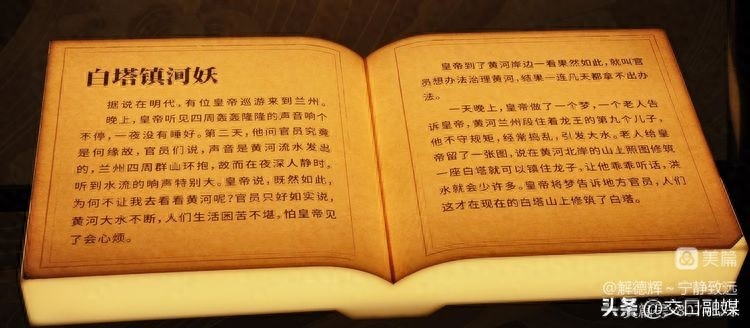 白塔镇河妖
据说在明代，有位皇帝巡游来到兰州。
晚上，皇帝听见四周轰轰隆隆的声音响个
不停，一夜没有睡好。第二天，他问官员究竟
是何缘故，官员们说，声音是黄河流水发出
的，兰州四周群山环抱，故而在夜深人静时，
听到水流的响声特别大。皇帝说，既然如此，
为何不让我去看看黄河呢？官员只好如实说，
黄河大水不断，人们生活困苦不堪。怕皇帝见
了会心烦。
皇帝到了黄河岸边一看果然如此，就叫官
员想办法治理黄河，结果一连几天都拿不出办
法。
一天晚上，皇帝做了一个梦，一个老人告
诉皇帝，黄河兰州段住着龙王的第九个儿子，
他不守规矩，经常捣乱，引发大水。老人给皇
帝留了一张图，说在黄河北岸的山上照图修筑
一座白塔就可以镇住龙子。让他乖乖听话，洪
水就会少许多。皇帝将梦告诉地方官员，人们
这才在现在的白塔山上修筑了白塔。
美篇
@解德辉～宁静致远
头条 @交口融媒